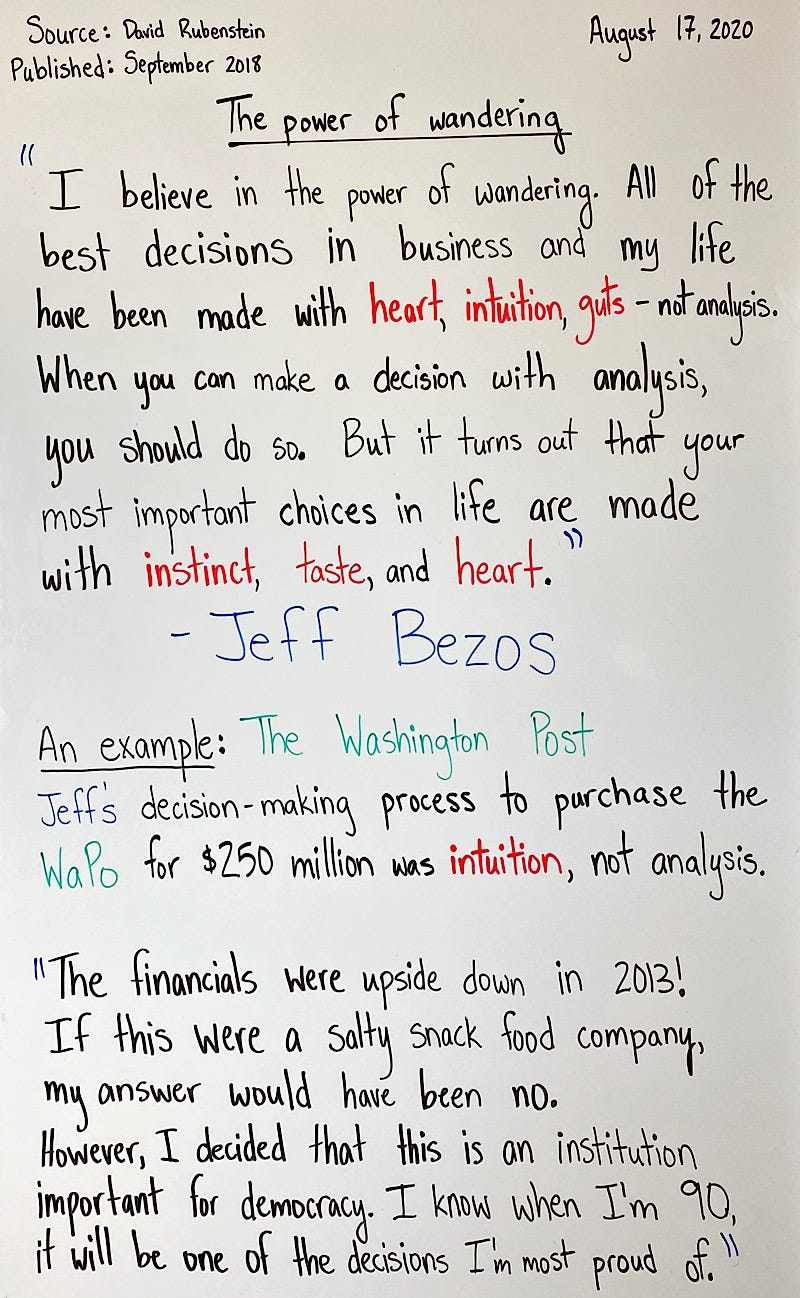 Source: David Rubenstein
August 17, 2020
Published: September 2018
The power of wandering
"I believe in the power of wandering. All of the
best decisions in business and my life
have been made with heart, intuition, guts - not analysis.
When you can make a decision with analysis,
you should do so. But it turns out that your
most important choices in life are made
with instinct, taste, and heart."
- Jeff Bezos
An example: The Washington Post
Jeff's decision-making process to purchase the
WaPo for $250 million was intuition, not analysis.
"The financials were upside down in 2013!
If this were a salty snack food company,
my answer would have been no.
However, I decided that this is an institution
important for democracy. I know when I'm 90,
it will be one of the decisions I'm most proud of."